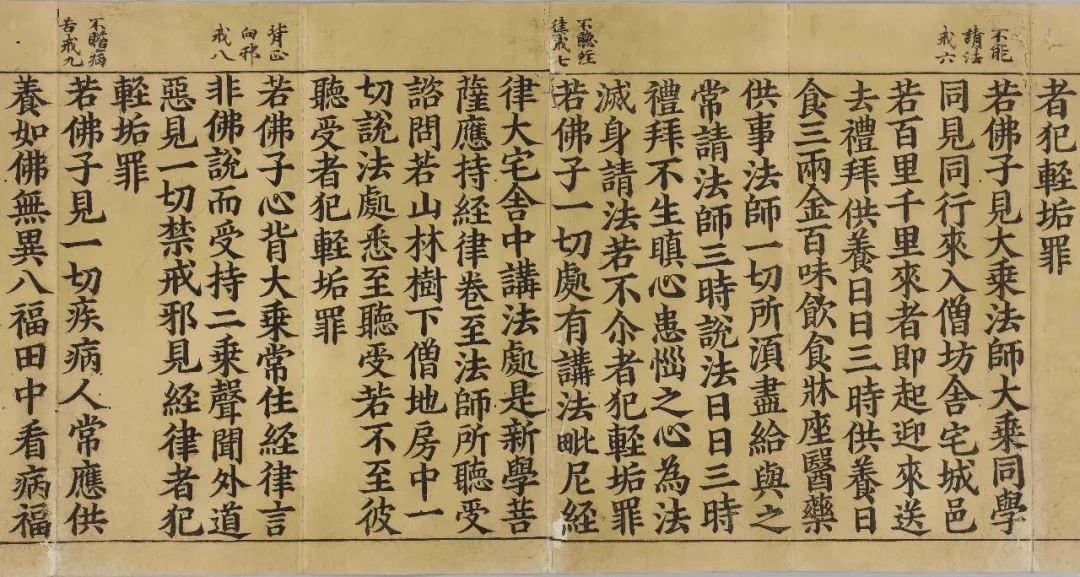 者犯輕垢罪
不能
請法
戒六
若佛子見大乘法師大乘同學
同見同行來入僧坊舍宅城邑
若百里千里來者即起迎來送
去禮拜供養日日三時供養日
食三兩金百味飲食牀座醫藥
供事法師一切所湏盡給與之
常請法師三時說法日日三時
禮拜不生瞋心患惱之心為法
滅身請法若不尒者犯輕垢罪
不聽經
律戒七
若佛子一切處有講法毗尼經
律大宅舍中講法處是新學菩
薩應持經律卷至法師所聽受
諮問若山林樹下僧地房中一
切說法處悉至聽受若不至彼
聽受者犯輕垢罪
背正
向邪
戒八
若佛子心背大乘常住經律言
非佛說而受持二乘聲聞外道
惡見一切禁戒邪見經律者犯
輕垢罪
不瞻病
苦戒九
若佛子見一切疾病人常應供
養如佛無異八福田中看病福